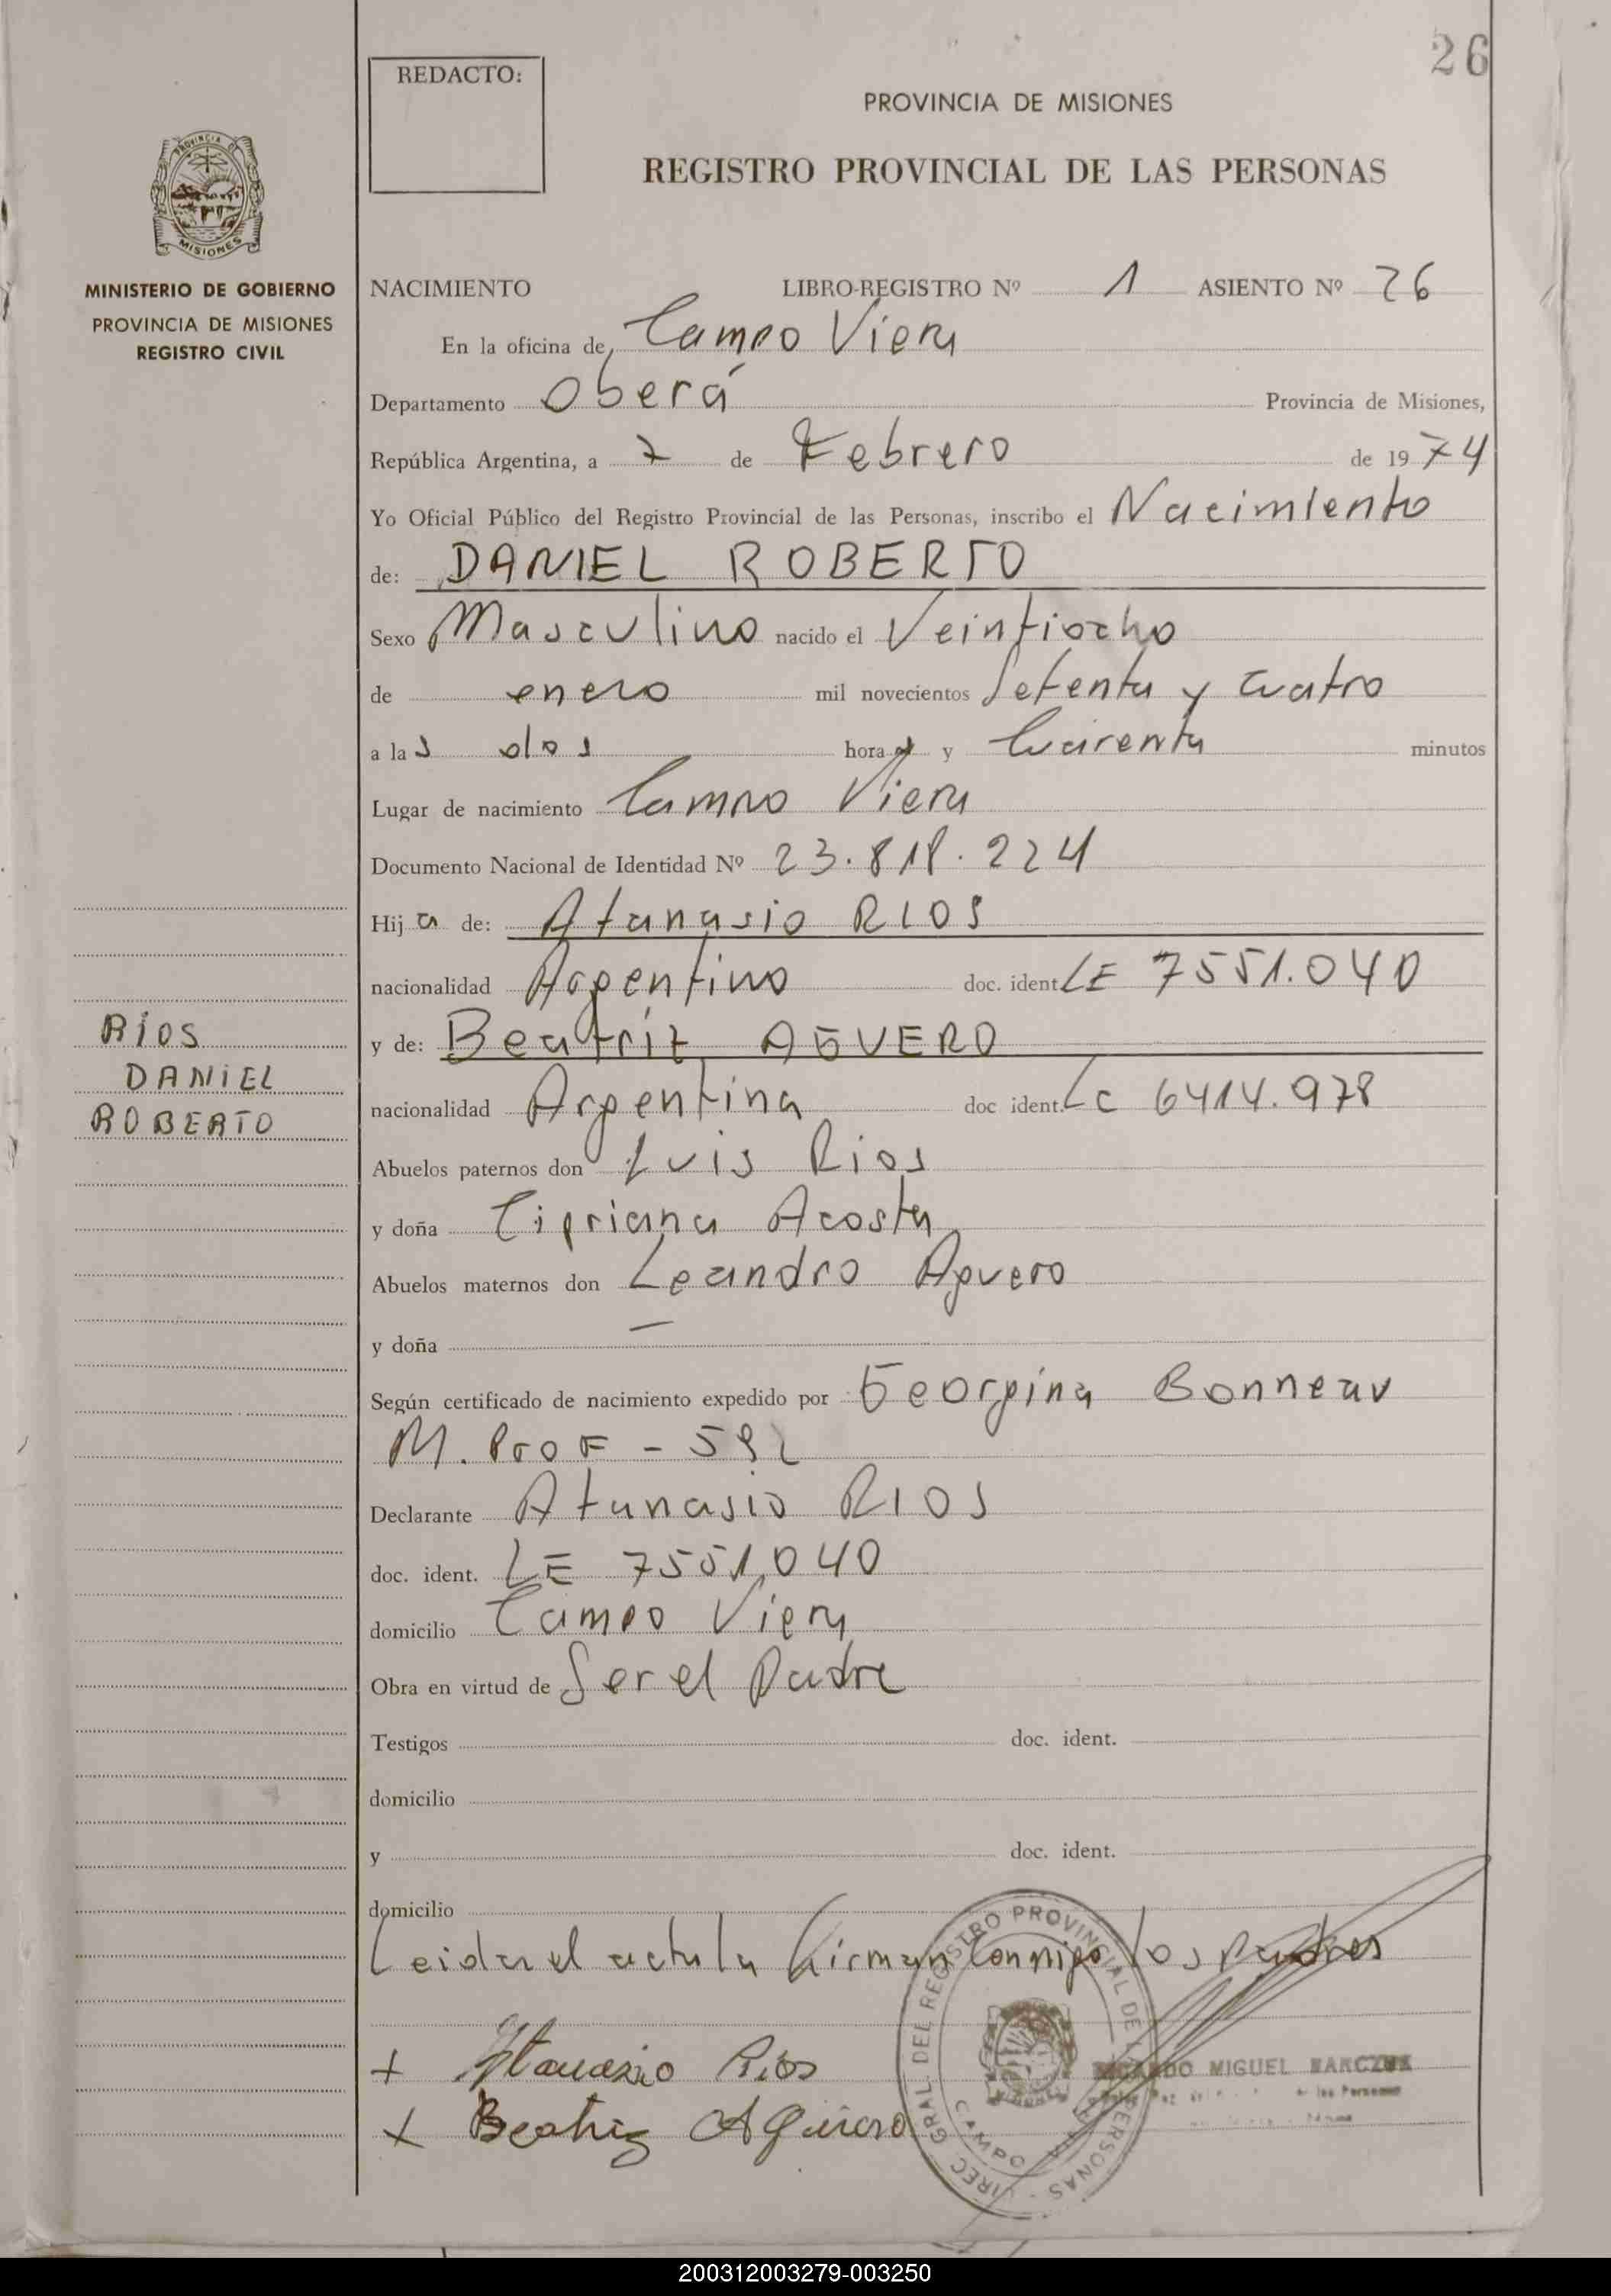 26
REDACTO:
PROVINCIA DE MISIONES
REGISTRO PROVINCIAL DE LAS PERSONAS
PROVINCIA DE
MISIONES
MINISTERIO DE GOBIERNO
PROVINCIA DE MISIONES
REGISTRO CIVIL
NACIMIENTO LIBRO-REGISTRO Nº 1 ASIENTO Nº 26
En la oficina de Campo Viera
Departamento Oberá Provincia de Misiones,
República Argentina, a 7 de Febrero de 1974
Yo Oficial Público del Registro Provincial de las Personas, inscribo el Nacimiento
de: DANIEL ROBERTO
Sexo Masculino nacido el Veintiocho
de enero mil novecientos Setenta y Cuatro
a las dos horas y Cuarenta minutos
Lugar de nacimiento Campo Viera
Documento Nacional de Identidad Nº 23.818.224
Hijo de: Atanasio RIOS
nacionalidad Argentino doc. ident. LE 7551.040
y de: Beatriz AGUERO
nacionalidad Argentina doc ident. LC 6414.978
RÍOS
DANIEL
ROBERTO
Abuelos paternos don Luis Rios
y doña Cipriana Acosta
Abuelos maternos don Leandro Aguero
y doña —
Según certificado de nacimiento expedido por Georgina Bonneau
M. Prof - 592
Declarante Atanasio RIOS
doc. ident. LE 7551.040
domicilio Campo Viera
Obra en virtud de Ser el Padre
Testigos doc. ident.
domicilio
y doc. ident.
domicilio
Leida el acta la firman Conmigo los padres
+ Atanasio Rios
+ Beatriz Agüero
GRAL DEL REGISTRO PROVINCIAL DE PERSONAS
CAMPO
MIGUEL
200312003279-003250